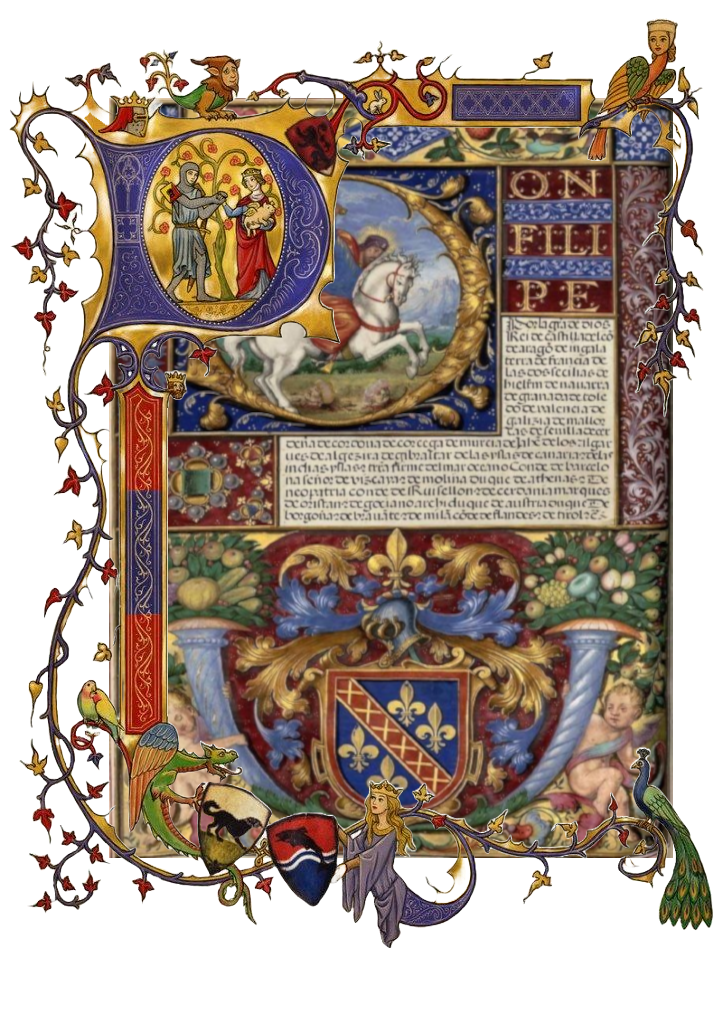 DON
FILI
PE
Por la gr̃a de dios
Rei de castilla de leõ
de aragõ de ingala
terra de francia de
las dos secilias de
hierlm̃ de navarra
de granada de tole
do de valencia de
galizia de mallor
cas de sevilla de cer
deña de cordova de corcega de murcia de Jahẽ de los algar
ves de algezira de gibraltar de las yslas de canaria: de las
indias yslas: & tr̃ra firme del mar oceano Conde de barcelo
na señor de vizcaya: & de molina duque de athenas: & de
neopatria conde de Ruisellon: & de cerdania marques
de oristan: & de gociano archiduque de austria duque de
borgoña: & de bravãte: & de milã cõde de flandes: & de tirol: &